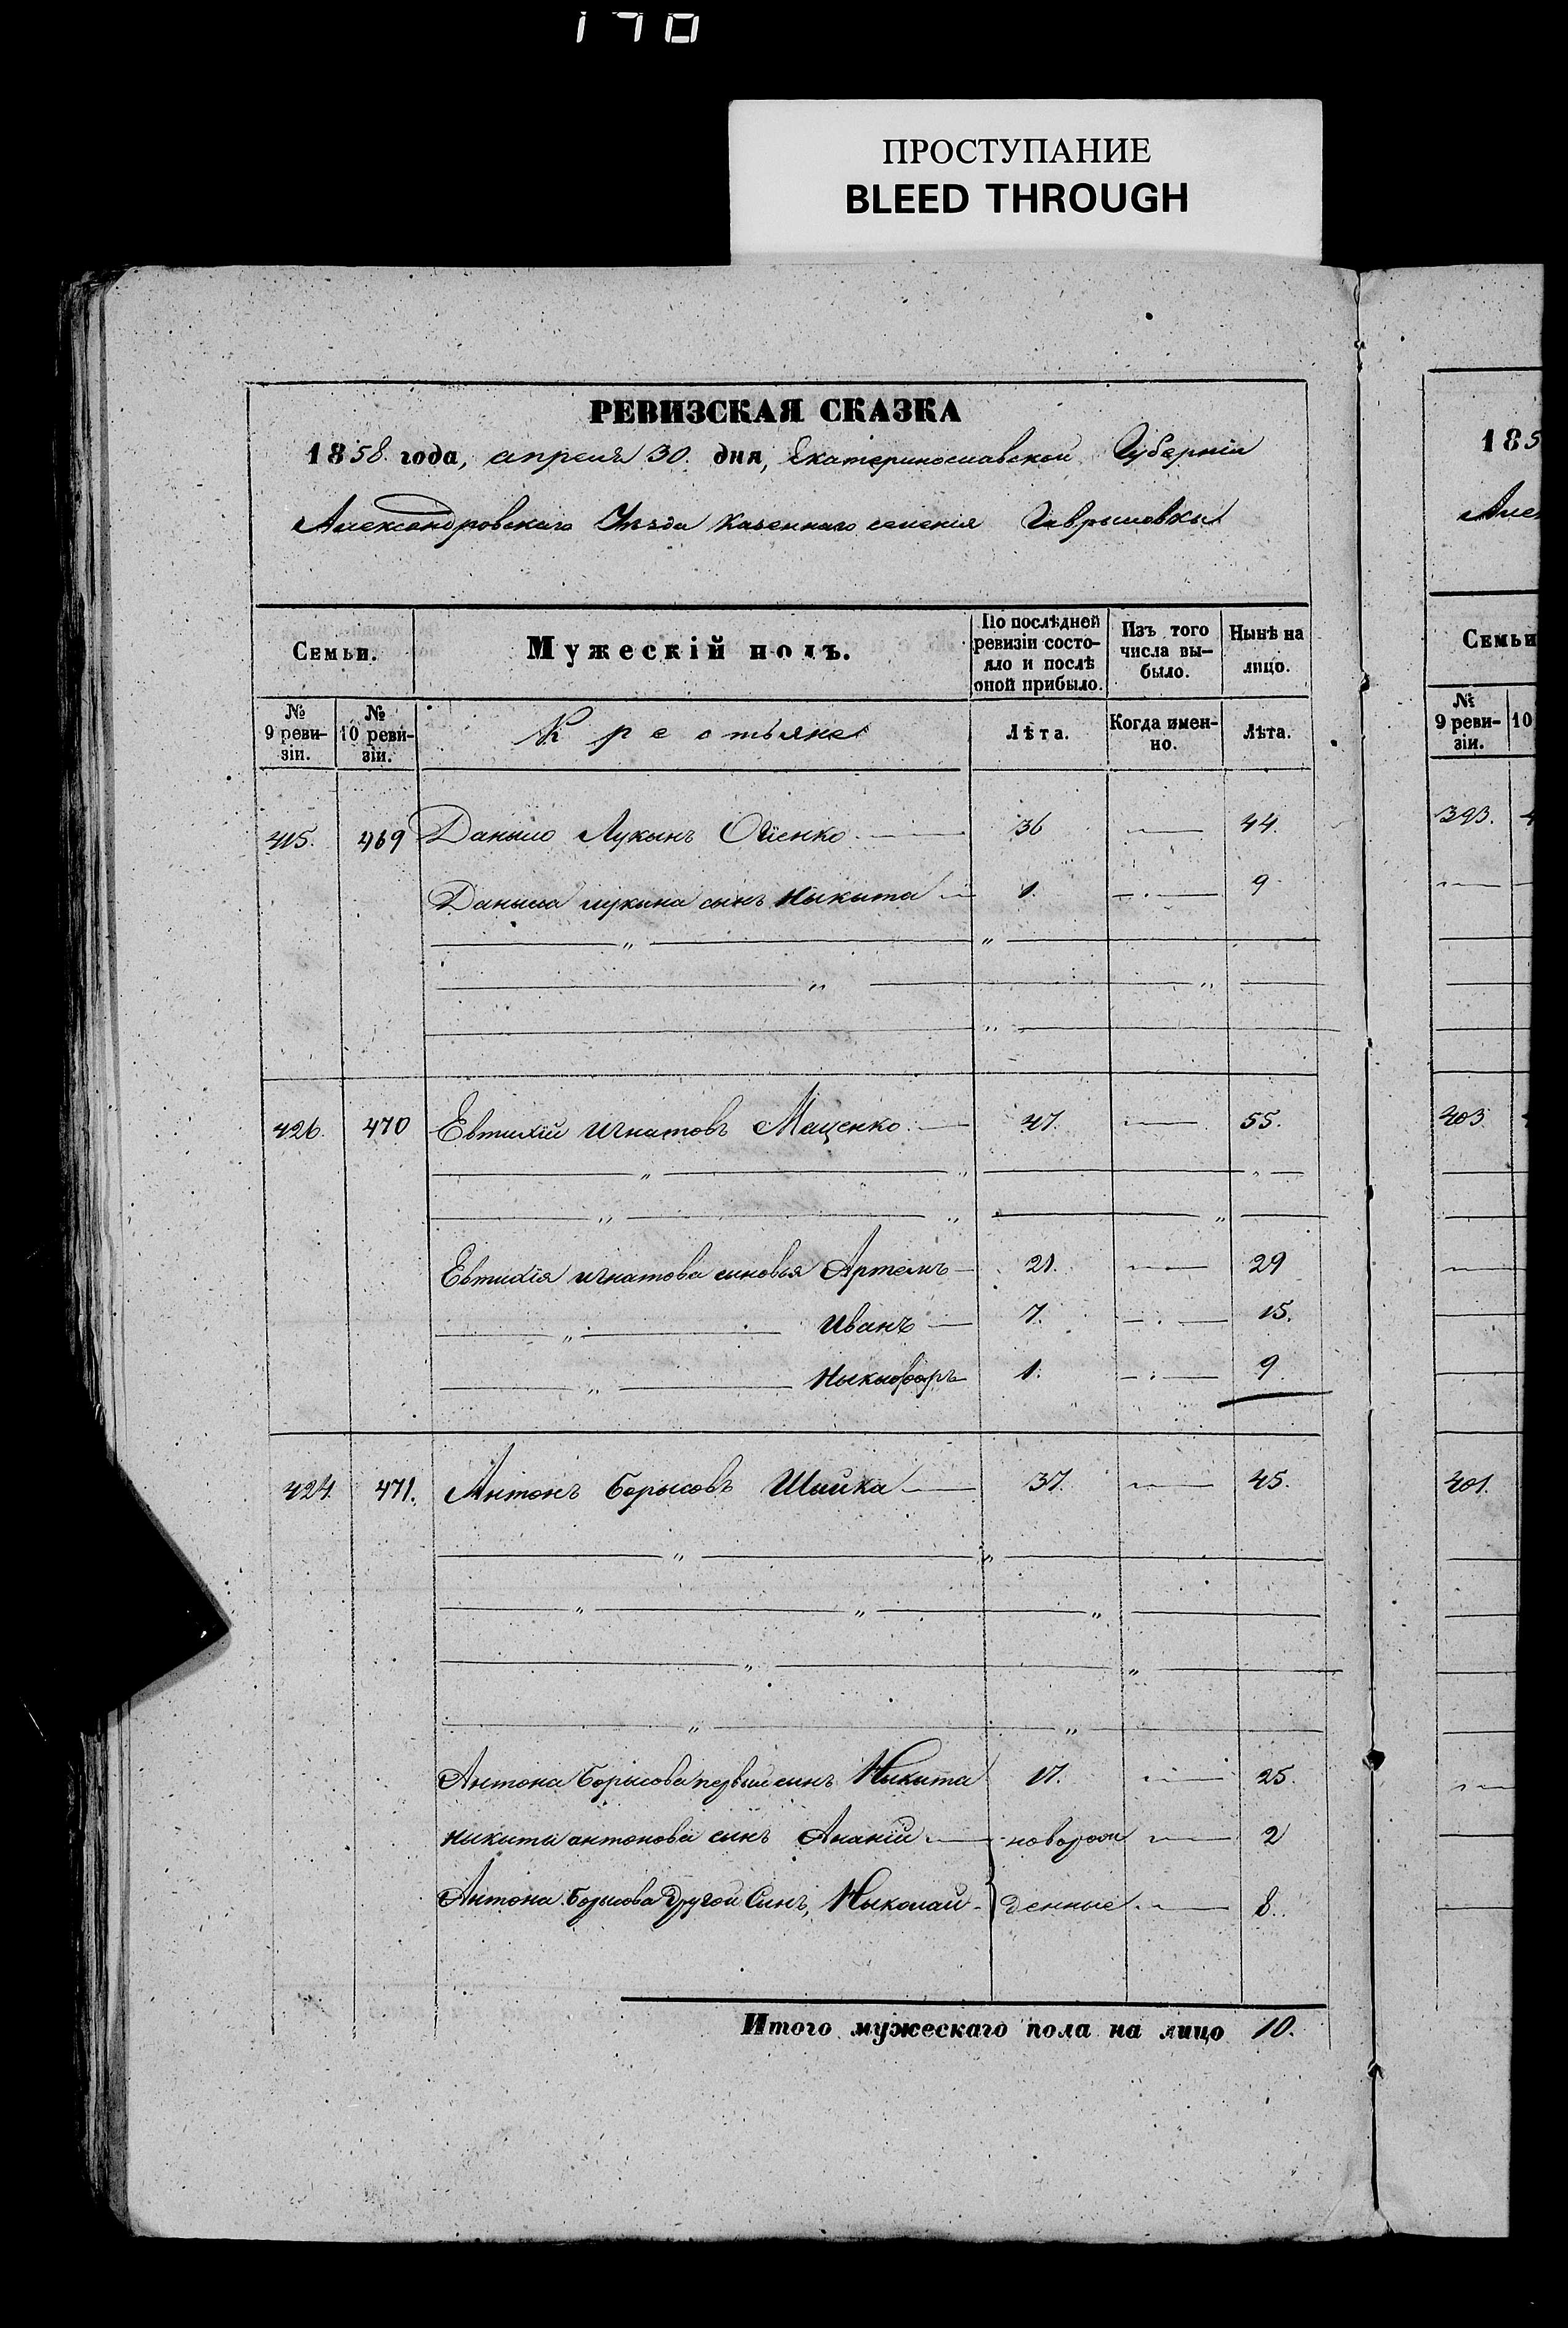 170
ПРОСТУПАНИЕ
BLEED THROUGH
РЕВИЗСКАЯ СКАЗКА
1858. года, апреля 30. дня, Екатеринославской Губерніи
Александровскаго Уѣзда казеннаго селенія Гаврыловкы
Семьи.
Мужескій полъ.
По послѣдней ревизіи состояло и послѣ оной прибыло.
Изъ того числа выбыло.
Нынѣ на лицо.
№ 9 ревизіи.
№ 10 ревизіи.
Крестьяне
Лѣта.
Когда именно.
Лѣта.
415. 469 Даныло Лукынъ Огіенко — 36 — 44.
Даныла лукина сынъ Ныкыта — 1. — 9
426. 470 Евтихій игнатовъ Маценко — 47. — 55.
Евтихія игнатова сыновья Артемъ — 21. — 29
Иванъ — 7. — 15.
Ныкыфоръ 1. — 9
424. 471. Антонъ Борысовъ Шайка — 37. — 45.
Антона Борысова первый сынъ Ныкита 17. — 25.
никиты антонова сынъ Ананій — новорож — 2
Антона Борысова Другой Сынъ, Ныколай - денные — 8.
Итого мужескаго пола на лицо 10.
185
Але
Семьи
№ 9 ревизіи.
10
393. 4
403.
401.